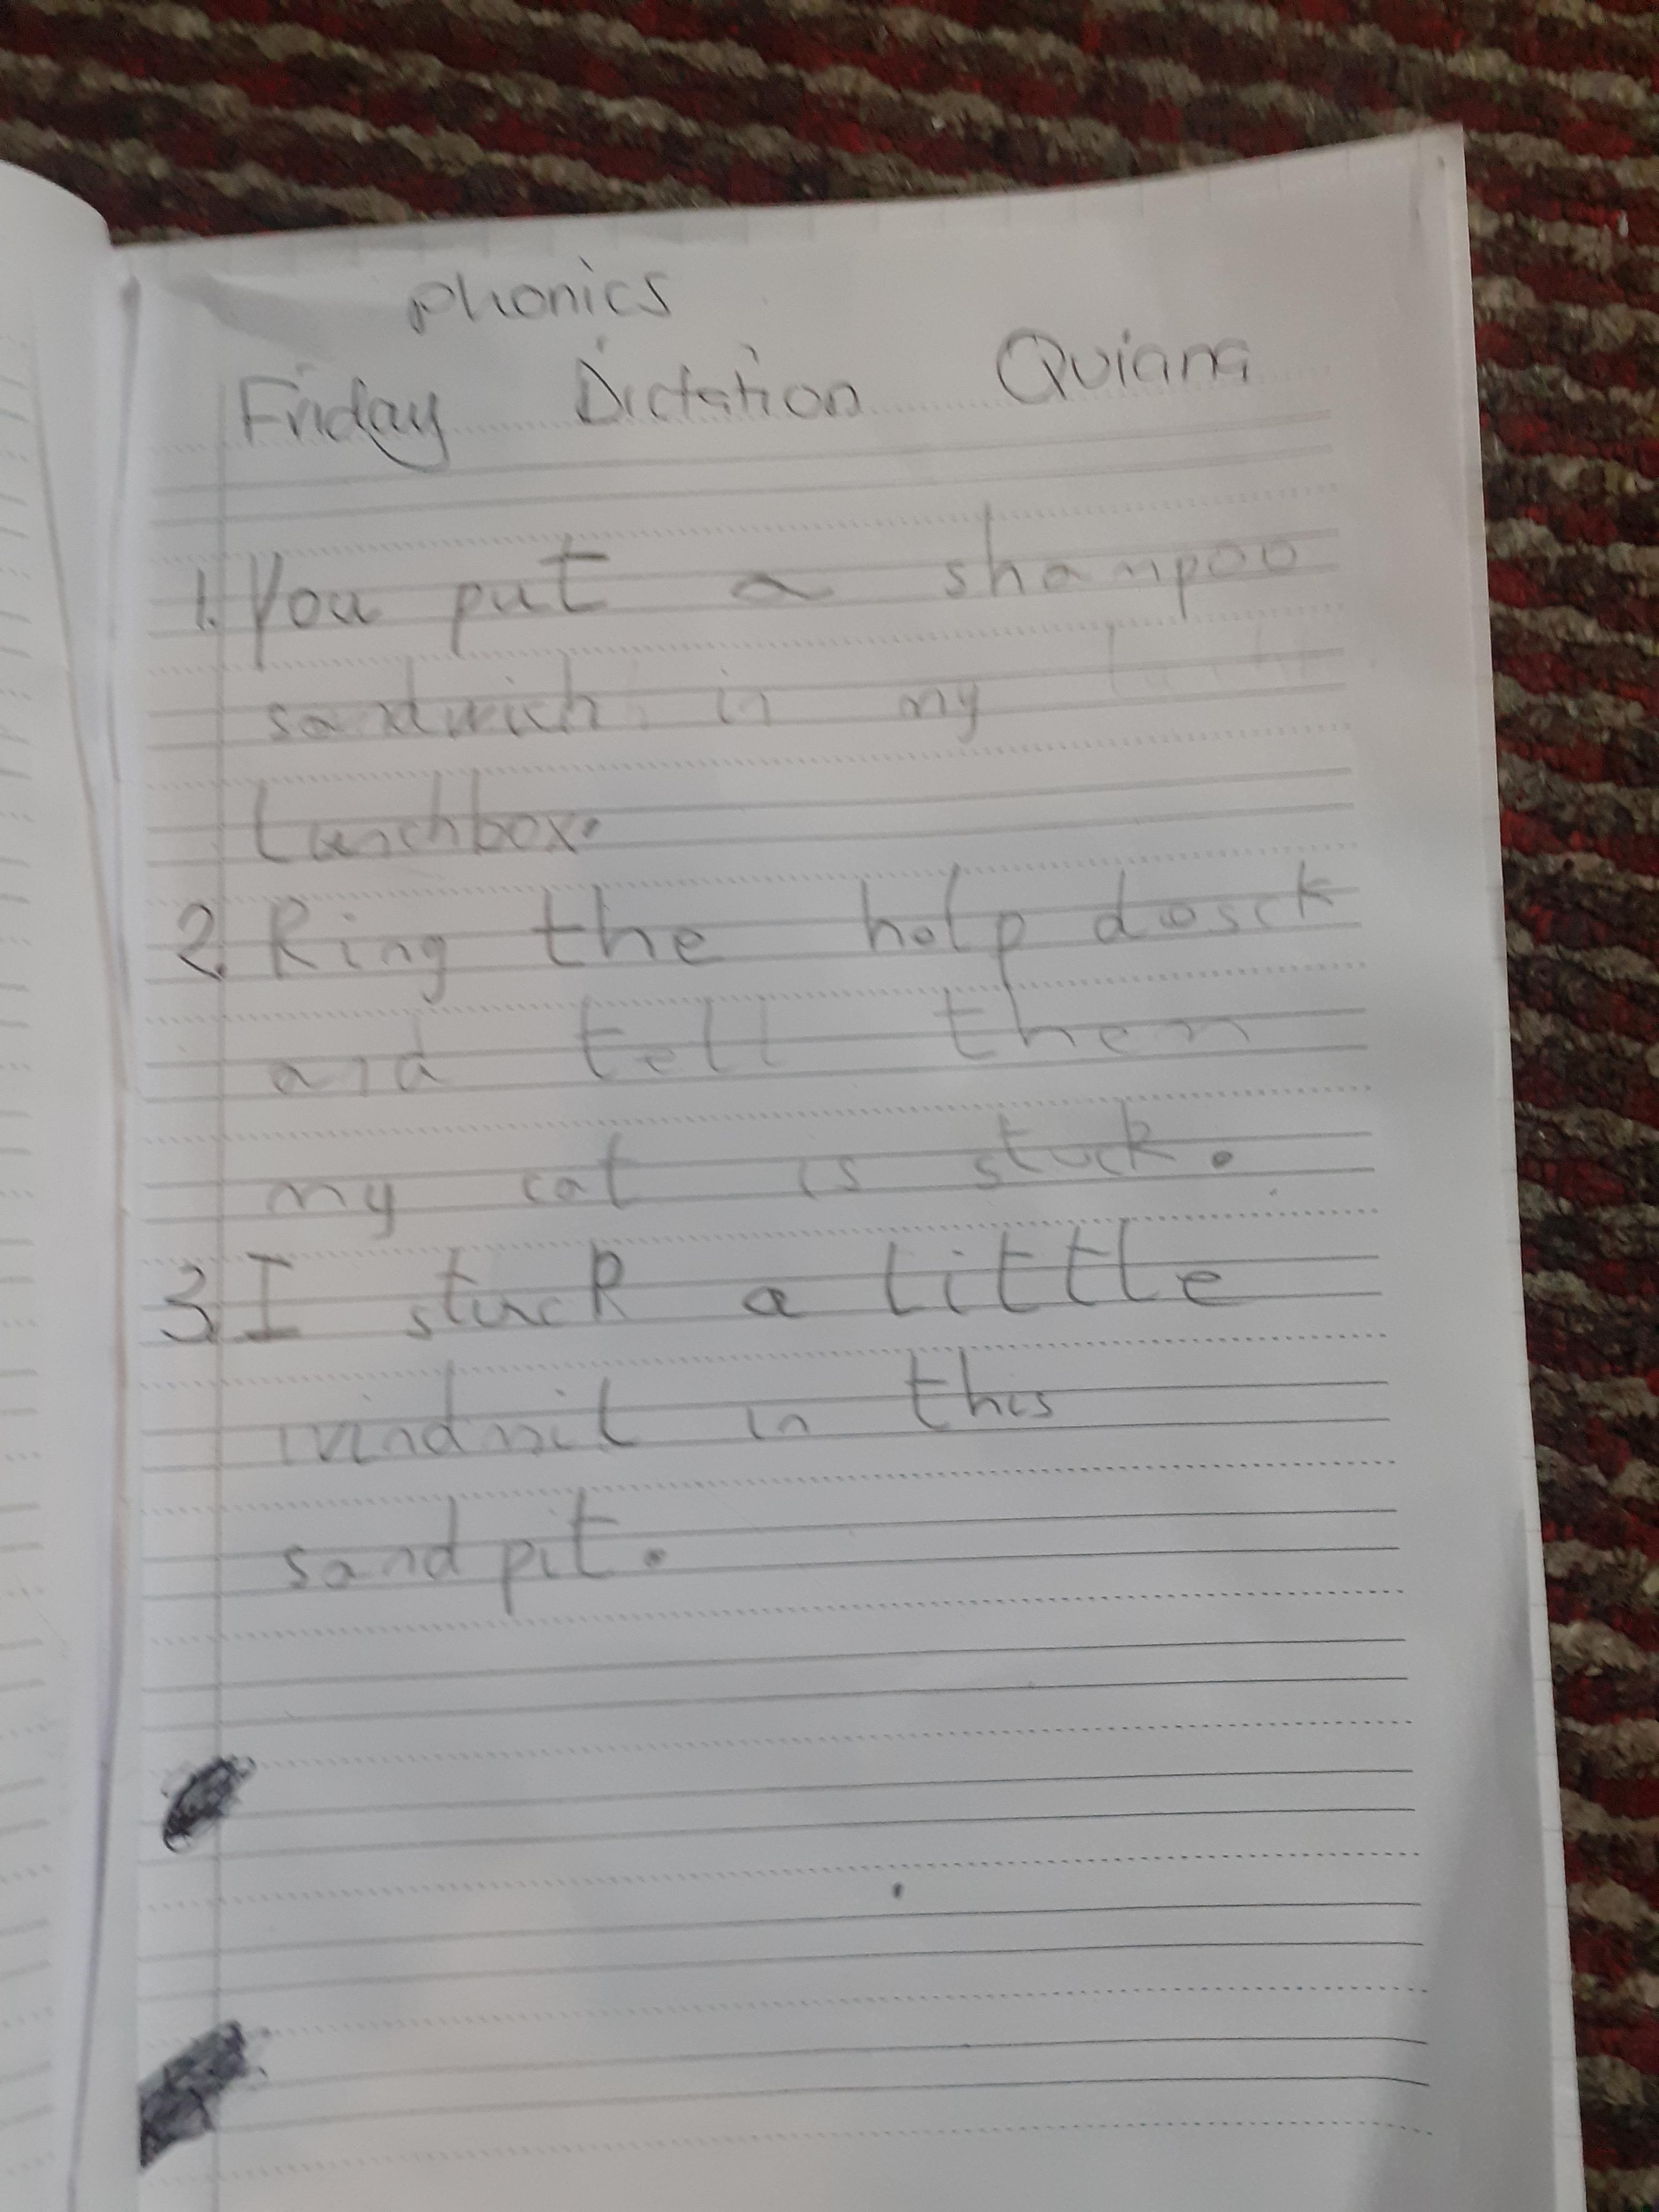 phonics
Friday Dictation Quiana
1. You put a shampoo
sandwich in my
Lunchbox.
2. Ring the help desck
and tell them
my cat is stuck.
3. I stuck a little
windmil in this
sandpit.